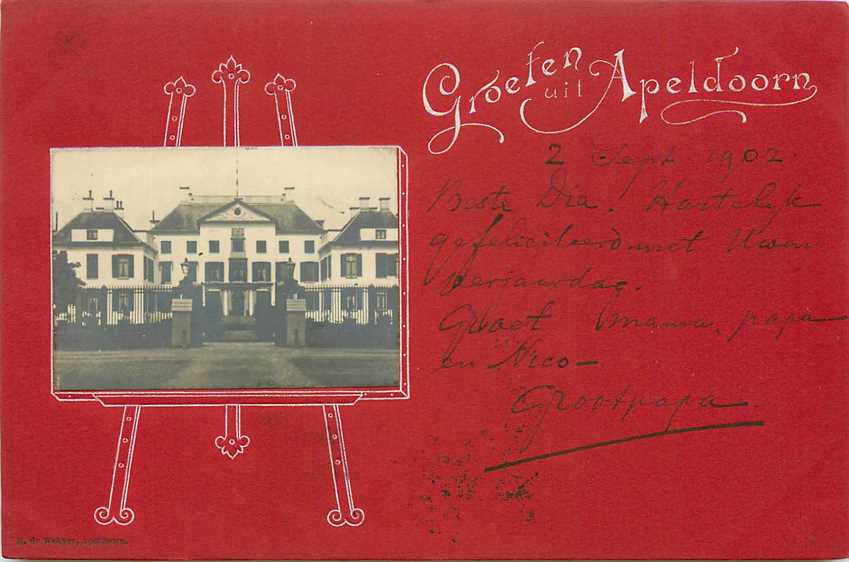 Groeten
uit Apeldoorn
2 Sept 1902.
Beste Dia! Hartelijk
gefeliciteerd met Uwen
verjaardag.
Groet mama, papa
en Nico —
Grootpapa